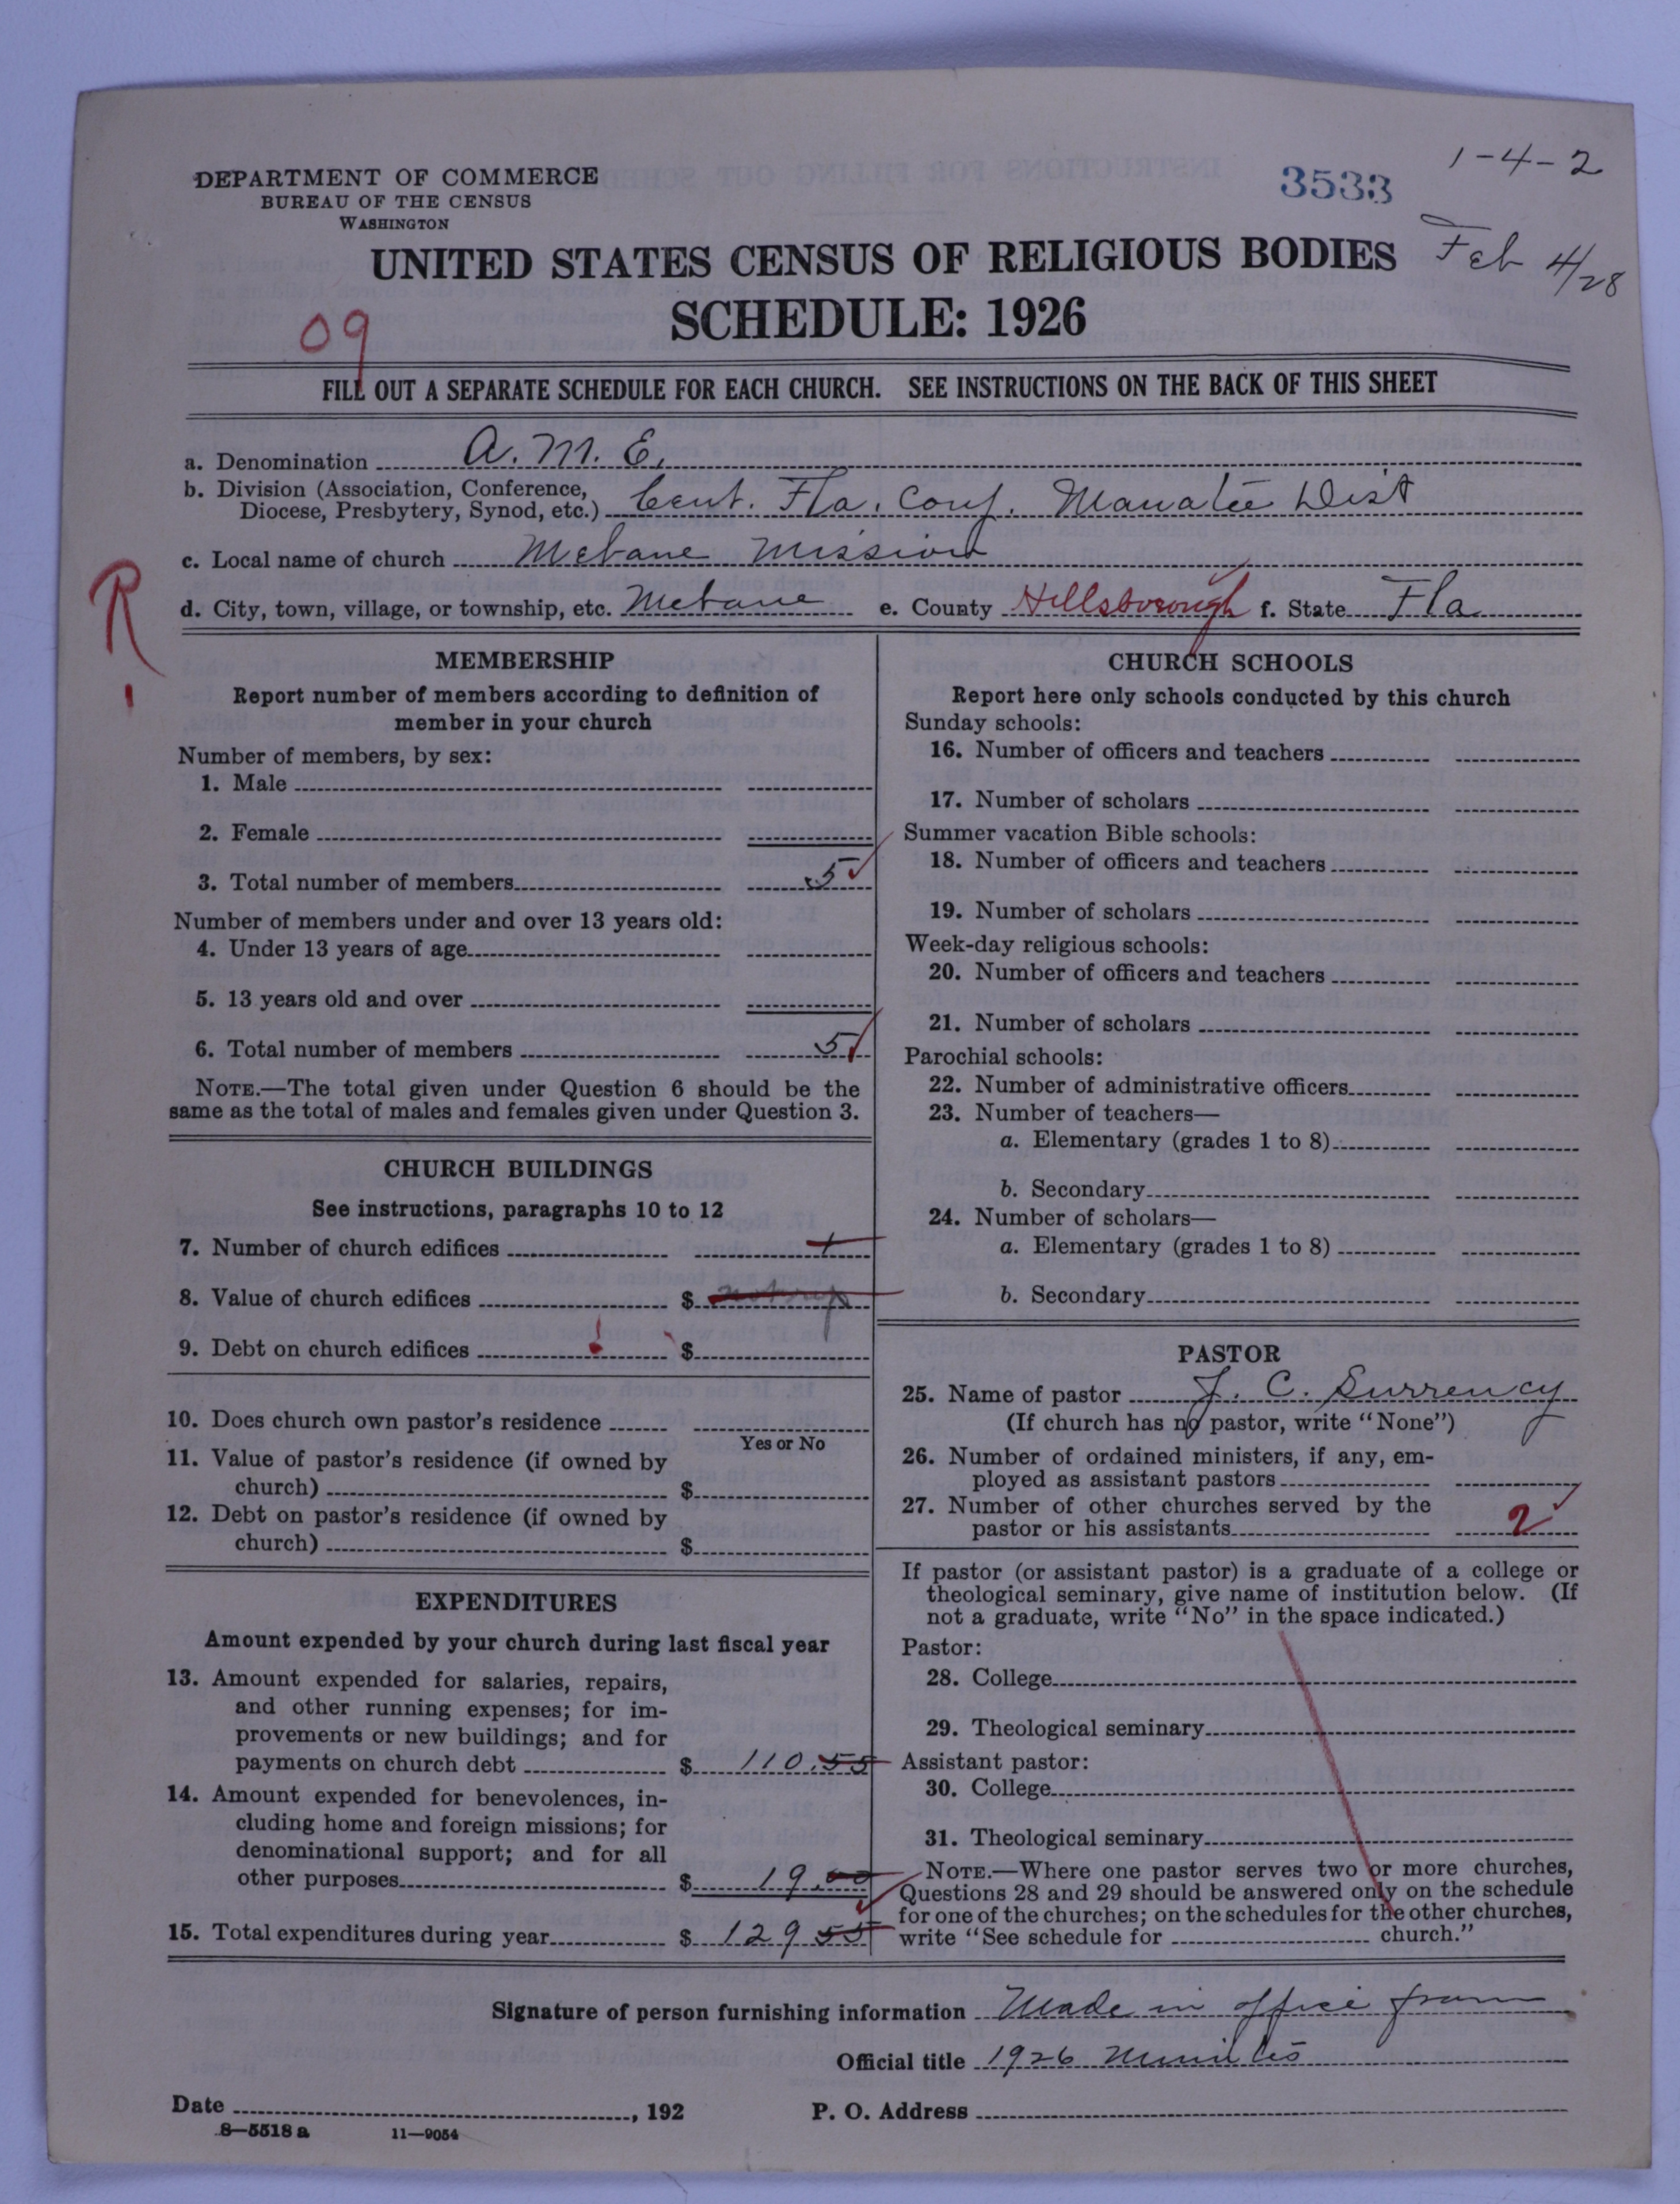 1-4-2
3533
DEPARTMENT OF COMMERCE
BUREAU OF THE CENSUS
WASHINGTON
UNITED STATES CENSUS OF RELIGIOUS BODIES
Feb 4/28
SCHEDULE: 1926
09
FILL OUT A SEPARATE SCHEDULE FOR EACH CHURCH. SEE INSTRUCTIONS ON THE BACK OF THIS SHEET
a. Denomination A. M. E.
b. Division (Association, Conference,
Diocese, Presbytery, Synod, etc.) Cent. Fla. Conf. Manatee Dist
c. Local name of church Mebane Mission
d. City, town, village, or township, etc. Mebane e. County Hillsborough f. State Fla
R
MEMBERSHIP
Report number of members according to definition of
member in your church
Number of members, by sex:
1. Male
2. Female
3. Total number of members 5
Number of members under and over 13 years old:
4. Under 13 years of age
5. 13 years old and over
6. Total number of members 5
NOTE.—The total given under Question 6 should be the
same as the total of males and females given under Question 3.
CHURCH BUILDINGS
See instructions, paragraphs 10 to 12
7. Number of church edifices 1
8. Value of church edifices $
9. Debt on church edifices ! $
10. Does church own pastor's residence
Yes or No
11. Value of pastor's residence (if owned by
church) $
12. Debt on pastor's residence (if owned by
church) $
EXPENDITURES
Amount expended by your church during last fiscal year
13. Amount expended for salaries, repairs,
and other running expenses; for im-
provements or new buildings; and for
payments on church debt $ 110.55
14. Amount expended for benevolences, in-
cluding home and foreign missions; for
denominational support; and for all
other purposes $ 19.00
15. Total expenditures during year $ 129 55
CHURCH SCHOOLS
Report here only schools conducted by this church
Sunday schools:
16. Number of officers and teachers
17. Number of scholars
Summer vacation Bible schools:
18. Number of officers and teachers
19. Number of scholars
Week-day religious schools:
20. Number of officers and teachers
21. Number of scholars
Parochial schools:
22. Number of administrative officers
23. Number of teachers—
a. Elementary (grades 1 to 8)
b. Secondary
24. Number of scholars—
a. Elementary (grades 1 to 8)
b. Secondary
PASTOR
25. Name of pastor J. C. Surrency
(If church has no pastor, write "None")
26. Number of ordained ministers, if any, em-
ployed as assistant pastors
27. Number of other churches served by the
pastor or his assistants 2
If pastor (or assistant pastor) is a graduate of a college or
theological seminary, give name of institution below. (If
not a graduate, write "No" in the space indicated.)
Pastor:
28. College
29. Theological seminary
Assistant pastor:
30. College
31. Theological seminary
NOTE.—Where one pastor serves two or more churches,
Questions 28 and 29 should be answered only on the schedule
for one of the churches; on the schedules for the other churches,
write "See schedule for church."
Signature of person furnishing information Made in office from
Official title 1926 Minutes
Date , 192
P. O. Address
8—5518 a 11—9054